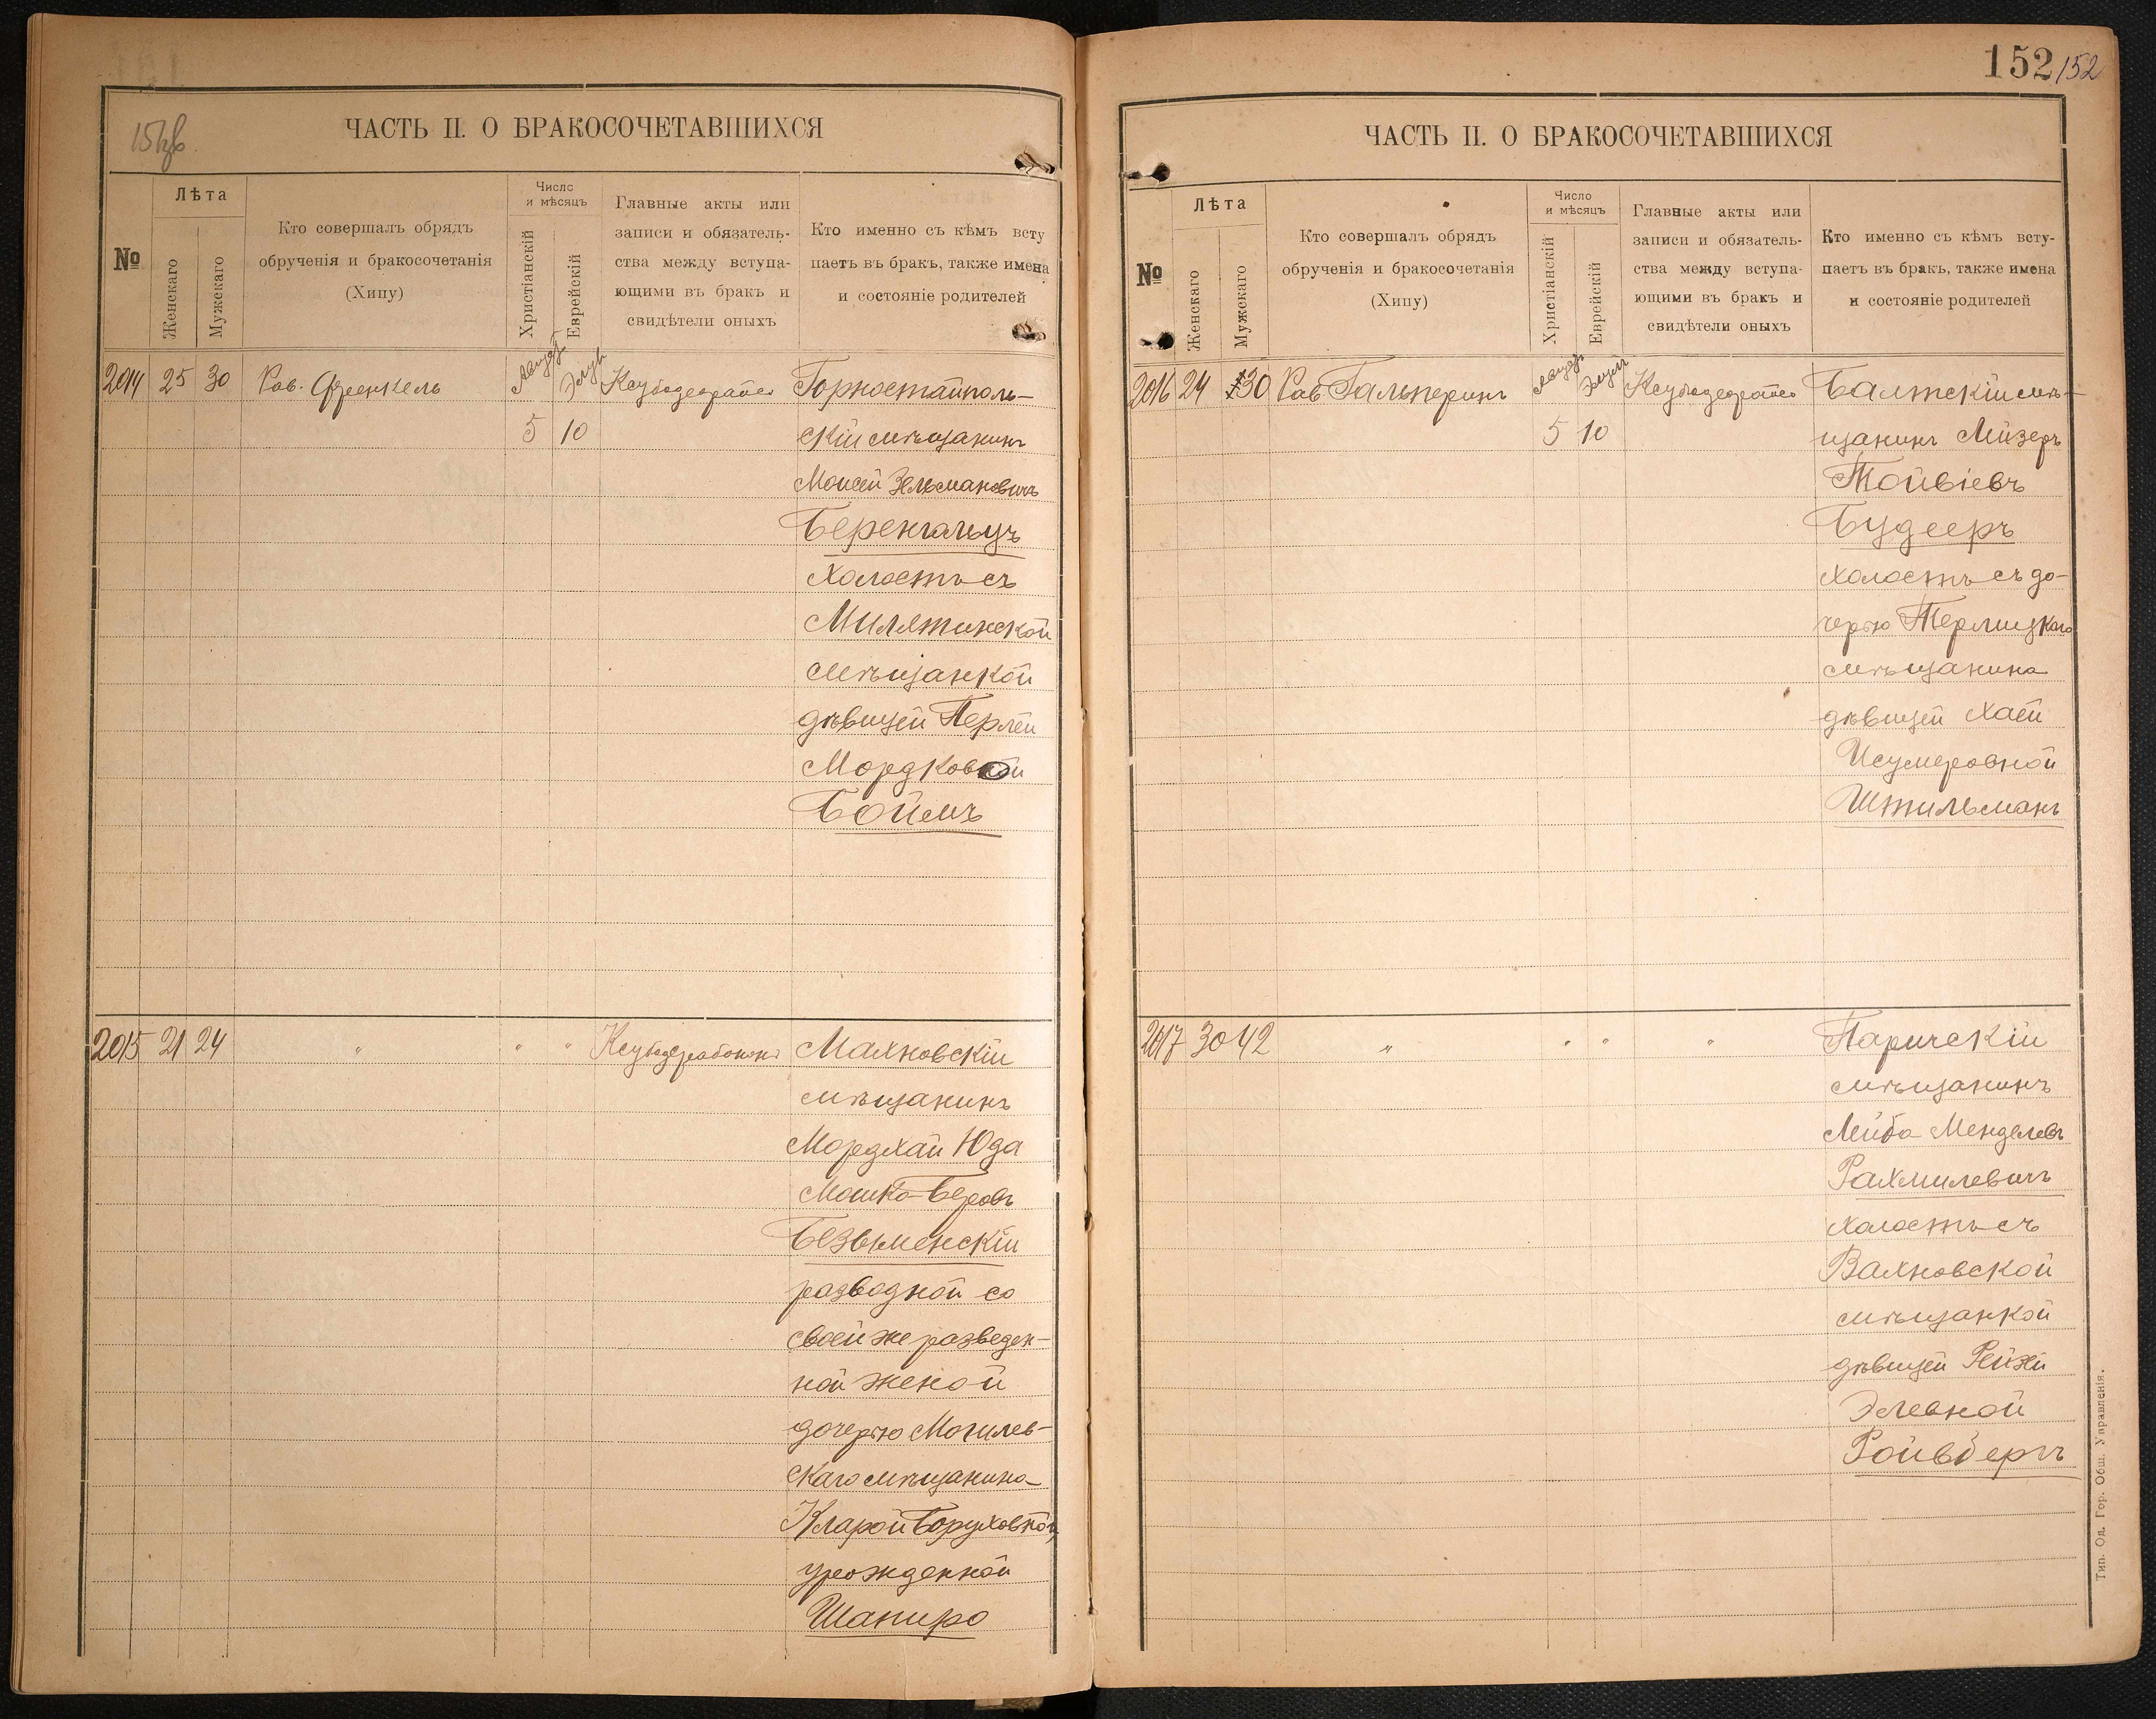 ЧАСТЬ II. О БРАКОСОЧЕТАВШИХСЯ
№
Лѣта
Женскаго
Мужскаго
Кто совершалъ обрядъ
обрученія и бракосочетанія
(Хипу)
Число
и мѣсяцъ
Христіанскій
Еврейскій
Главные акты или
записи и обязатель-
ства между вступа-
ющими въ бракъ и
свидѣтели оныхъ
Кто именно съ кѣмъ всту
паетъ въ бракъ, также имена
и состояніе родителей
2014 25 30 Рав. Френкель Август Элул Горностайполь-
5 10 скій мѣщанинъ
Моисей Зельмановичъ
Беренгольцъ
холостъ съ
Милятинской
мѣщанкой
дѣвицей Перлей
Мордковной
Боймъ
2015 21 24 " " " Махновскій
мѣщанинъ
Мордхай Юда
Мошко-Беровъ
Безыменскій
разводной со
своей же разведен-
ной женой
дочерью Могилев-
скаго мѣщанина
Кларой Боруховной,
урожденной
Шапиро
152 152
ЧАСТЬ II. О БРАКОСОЧЕТАВШИХСЯ
№
Лѣта
Женскаго
Мужскаго
Кто совершалъ обрядъ
обрученія и бракосочетанія
(Хипу)
Число
и мѣсяцъ
Христіанскій
Еврейскій
Главные акты или
записи и обязатель-
ства между вступа-
ющими въ бракъ и
свидѣтели оныхъ
Кто именно съ кѣмъ всту-
паетъ въ бракъ, также имена
и состояніе родителей
2016 24 30 Рав Гальперинъ Август Элул Балтскій мѣ-
5 10 щанинъ Лейзеръ
Тойвіевъ
Будееръ
холостъ съ до-
черью Терлицкаго
мѣщанина
дѣвицей Хаей
Исумеровной
Штильманъ
2017 30 42 " " " " Паричскій
мѣщанинъ
Лейба Менделевъ
Рахмилевичъ
холостъ съ
Вахновской
мѣщанкой
дѣвицей Рейзей
Элевной
Ройвбергъ
Тип. Од. Гор. Общ. Управленія.